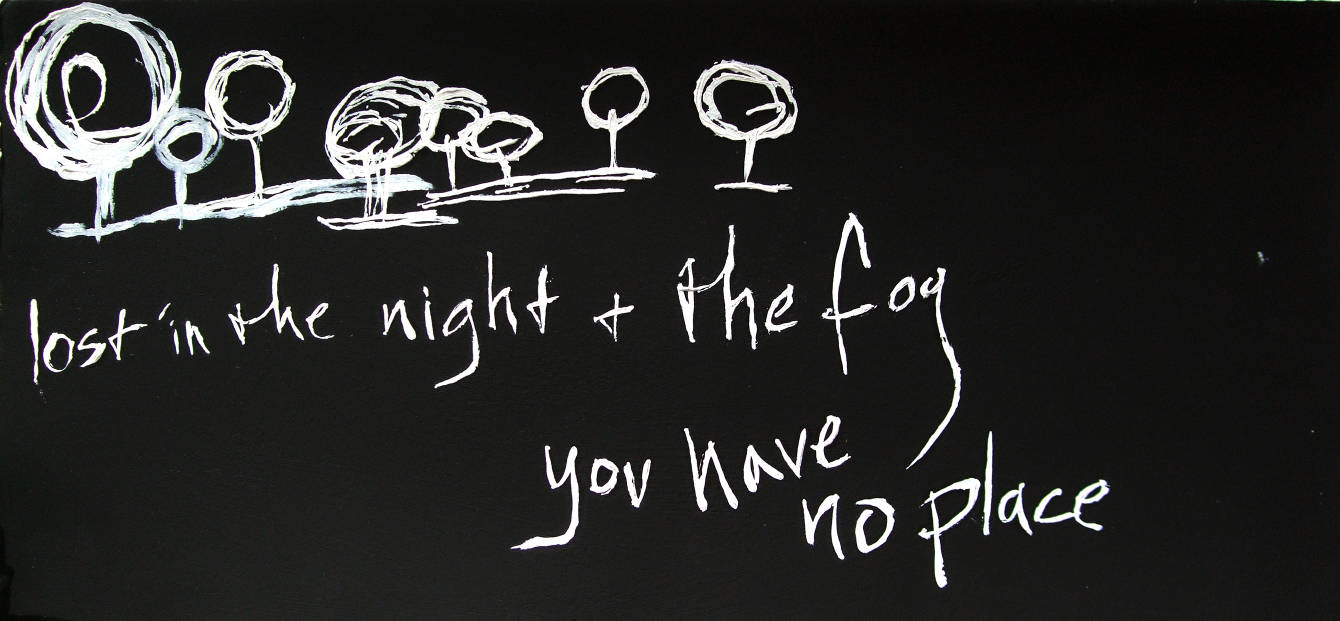 lost in the night + the fog
you have
no place